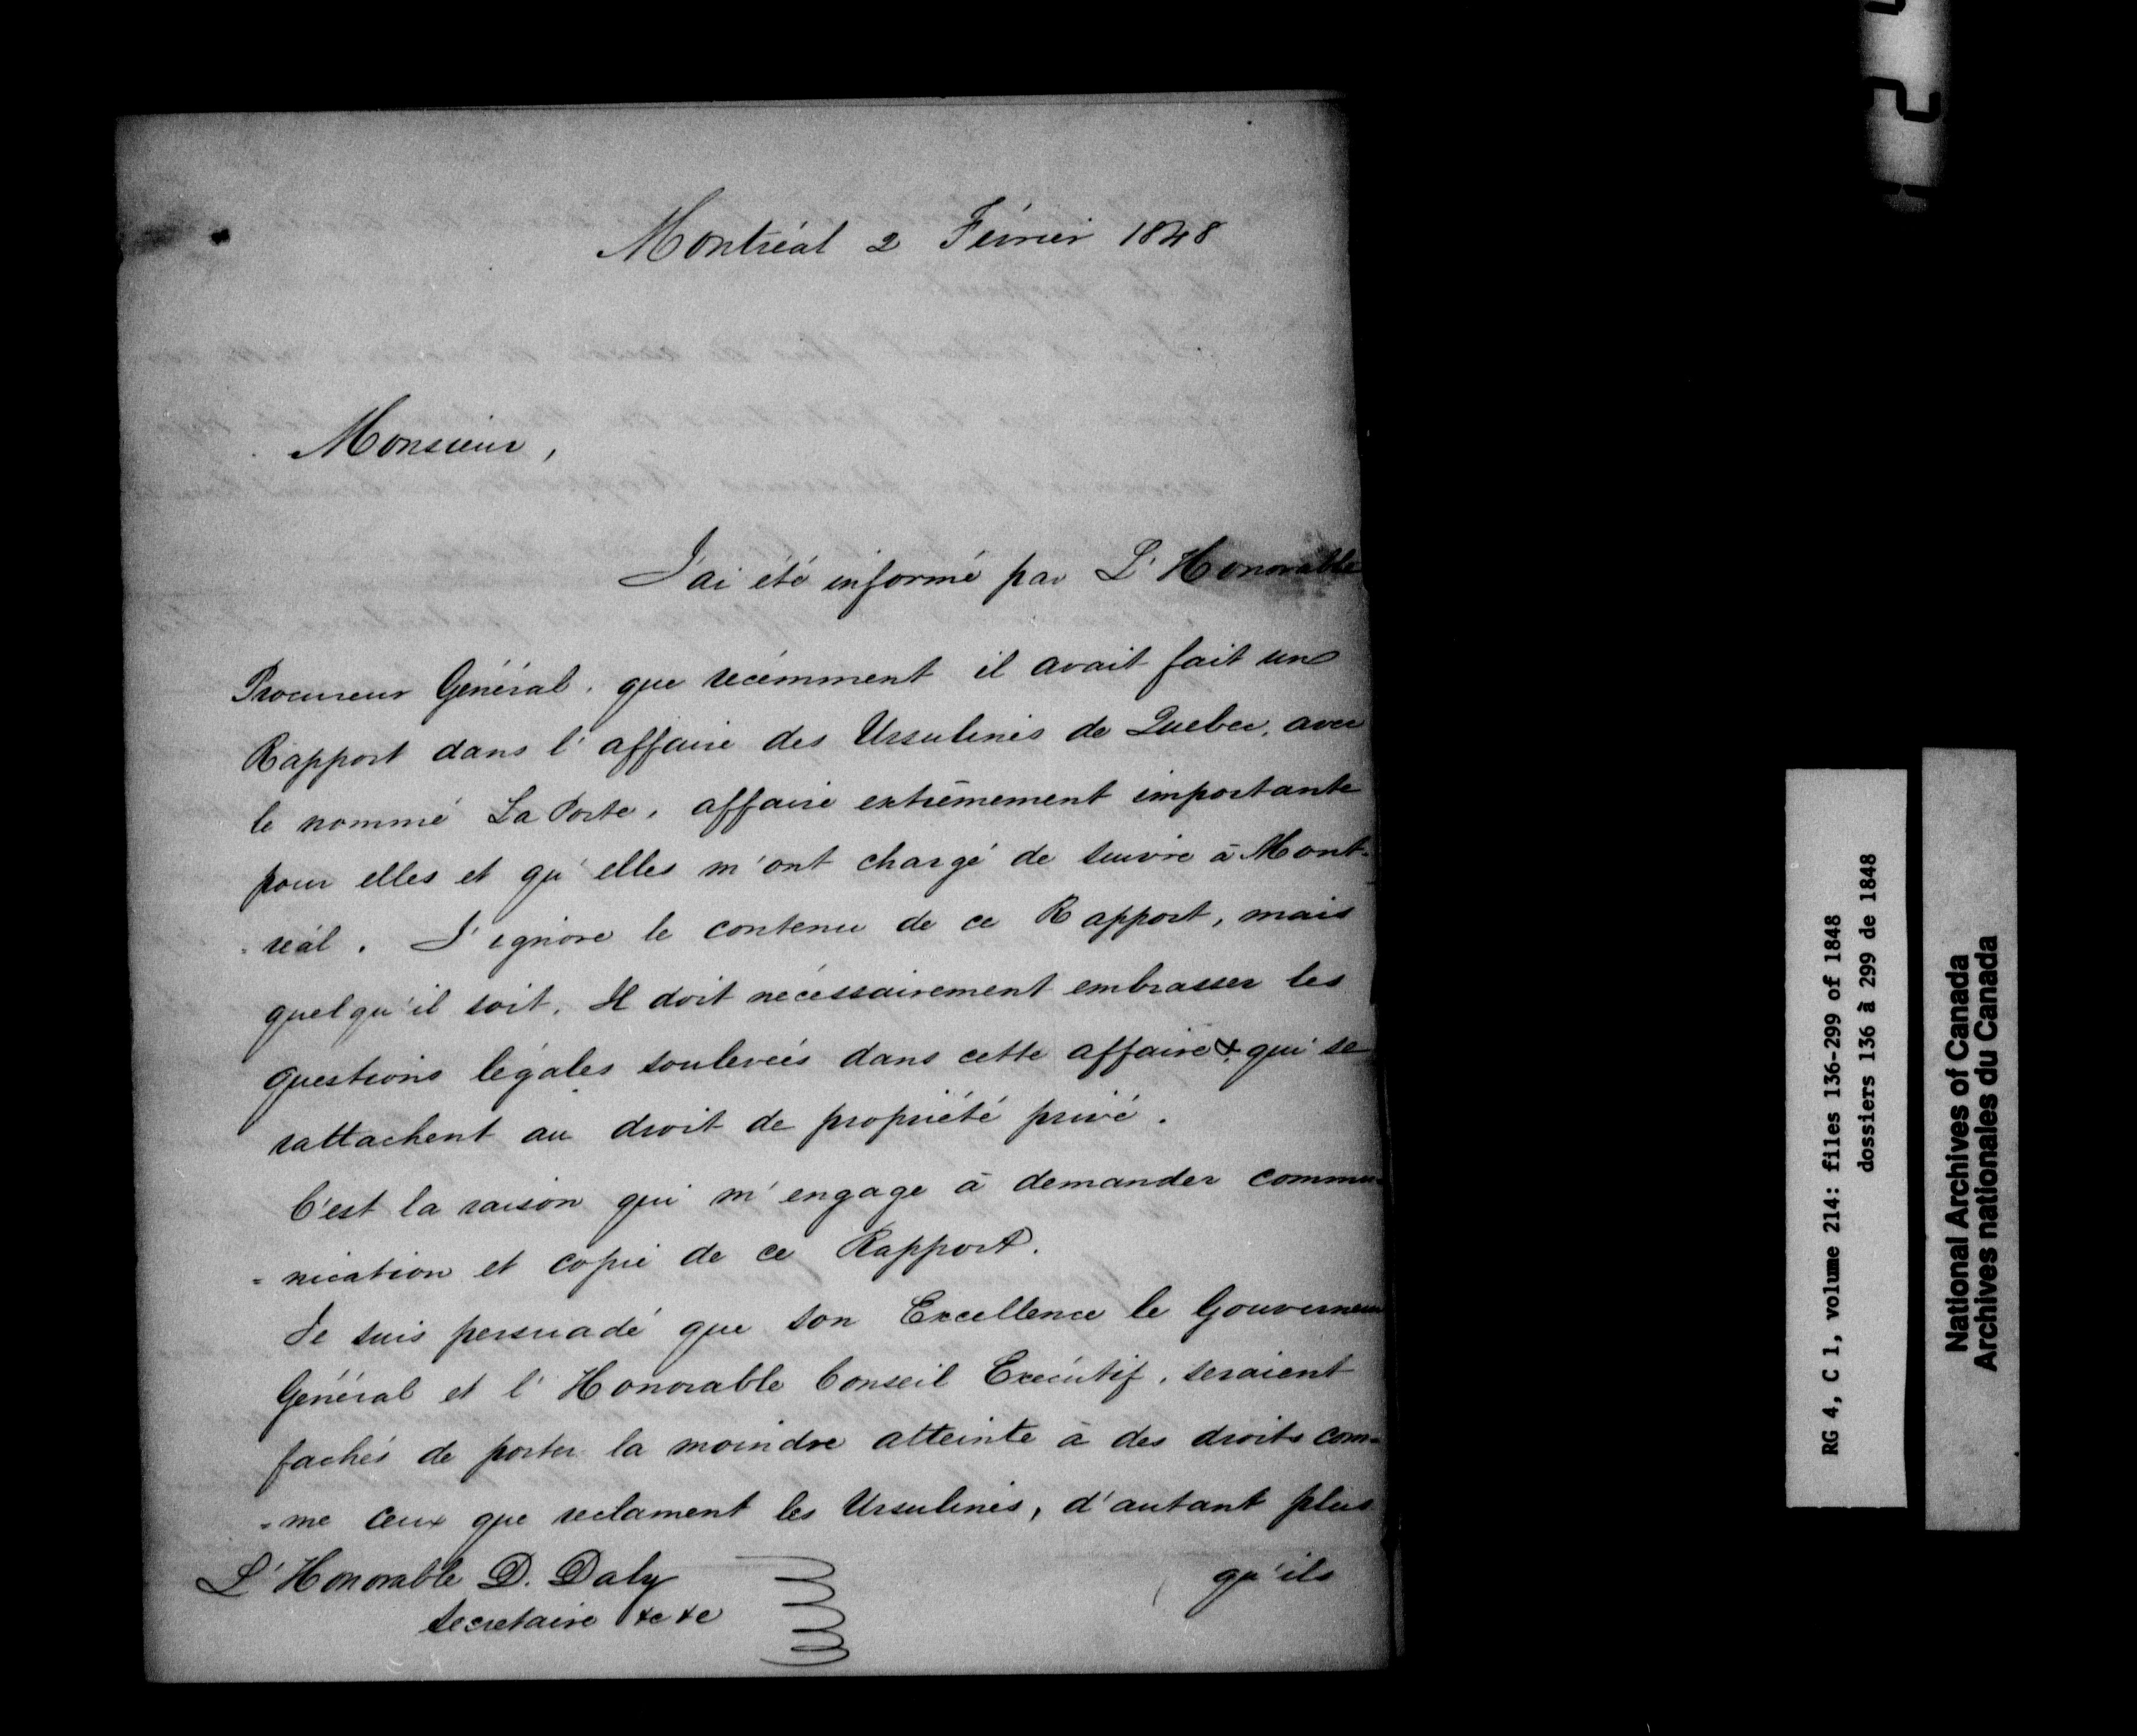 Montréal 2 Février 1848
Monsieur,
J'ai été informé par L'Honorable
Procureur Général, que récemment il avait fait un
Rapport dans l'affaire des Ursulines de Quebec, avec
le nommé La Porte, affaire extrêmement importante
pour elles et qu'elles m'ont chargé de suivre à Mont-
-réal. J'ignore le contenu de ce Rapport, mais
quelqu'il soit, Il doit nécessairement embrasser les
questions légales soulevées dans cette affaire & qui se
rattachent au droit de propriété privé.
C'est la raison qui m'engage à demander commu-
=nication et copie de ce Rapport.
Je suis persuadé que son Excellence le Gouverneur
Général et l'Honorable Conseil Exécutif, seraient
fachés de porter la moindre atteinte à des droits com-
=me ceux que reclament les Ursulines, d'autant plus
qu'ils
L'Honorable D. Daly
Secretaire &c &c
RG 4, C 1, volume 214: files 136-299 of 1848
dossiers 136 à 299 de 1848
National Archives of Canada
Archives nationales du Canada